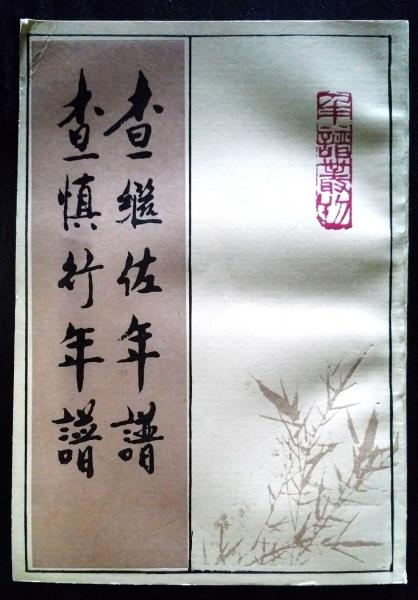 查繼佐年譜
查慎行年譜
年譜叢刊